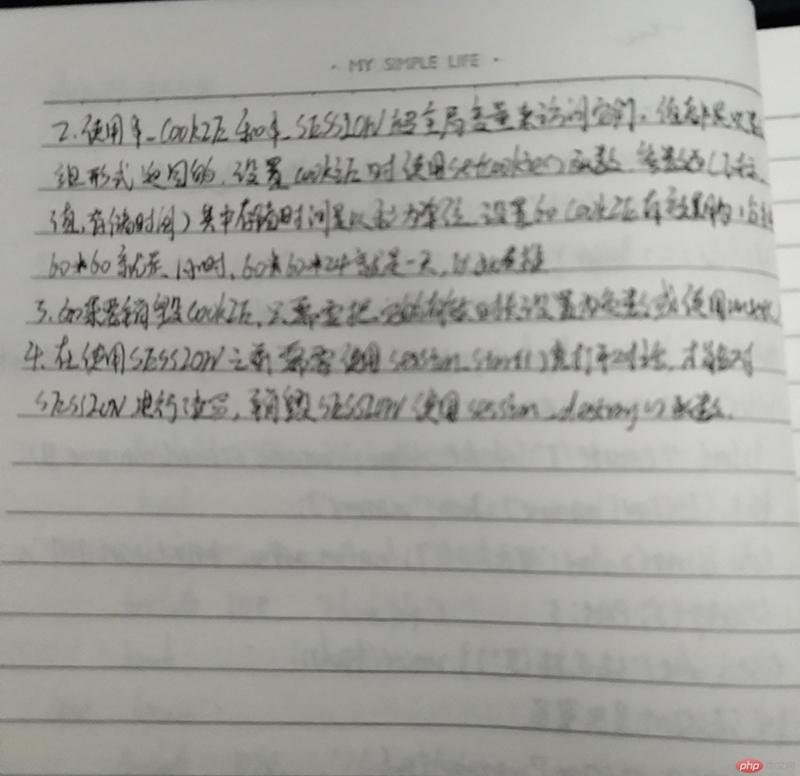 · MY SIMPLE LIFE ·
2.使用$_COOKIE和$_SESSION超全局变量来访问它们,值都是以数
组形式返回的,设置COOKIE时使用setcookie()函数,参数为(
值,存储时间)其中存储时间是以秒为单位,设置60 COOKIE存
60*60就是1小时,60*60*24就是一天,以此类推
3.如果要销毁COOKIE,只需要把设置为负数或使用
4.在使用SESSION之前需要使用session_start()来打开对话,才能对
SESSION进行读写,销毁SESSION使用session_destroy()函数.
php